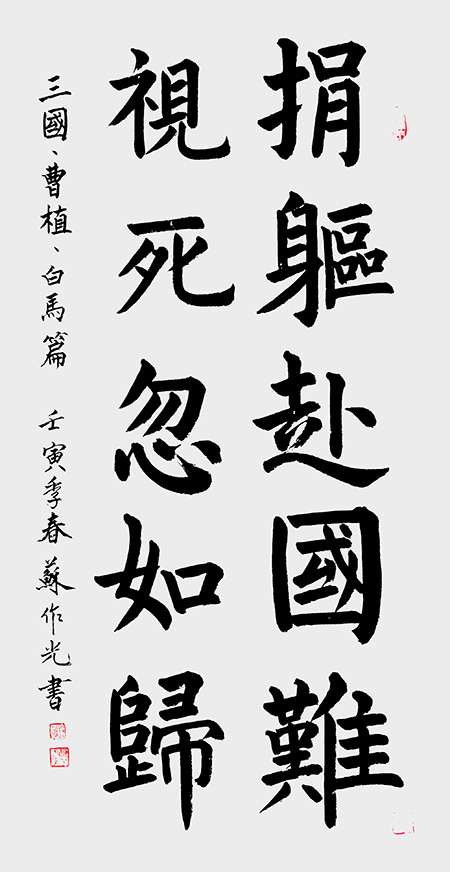 捐軀赴國難
視死忽如歸
三國、曹植、白馬篇 壬寅季春蘇作光書